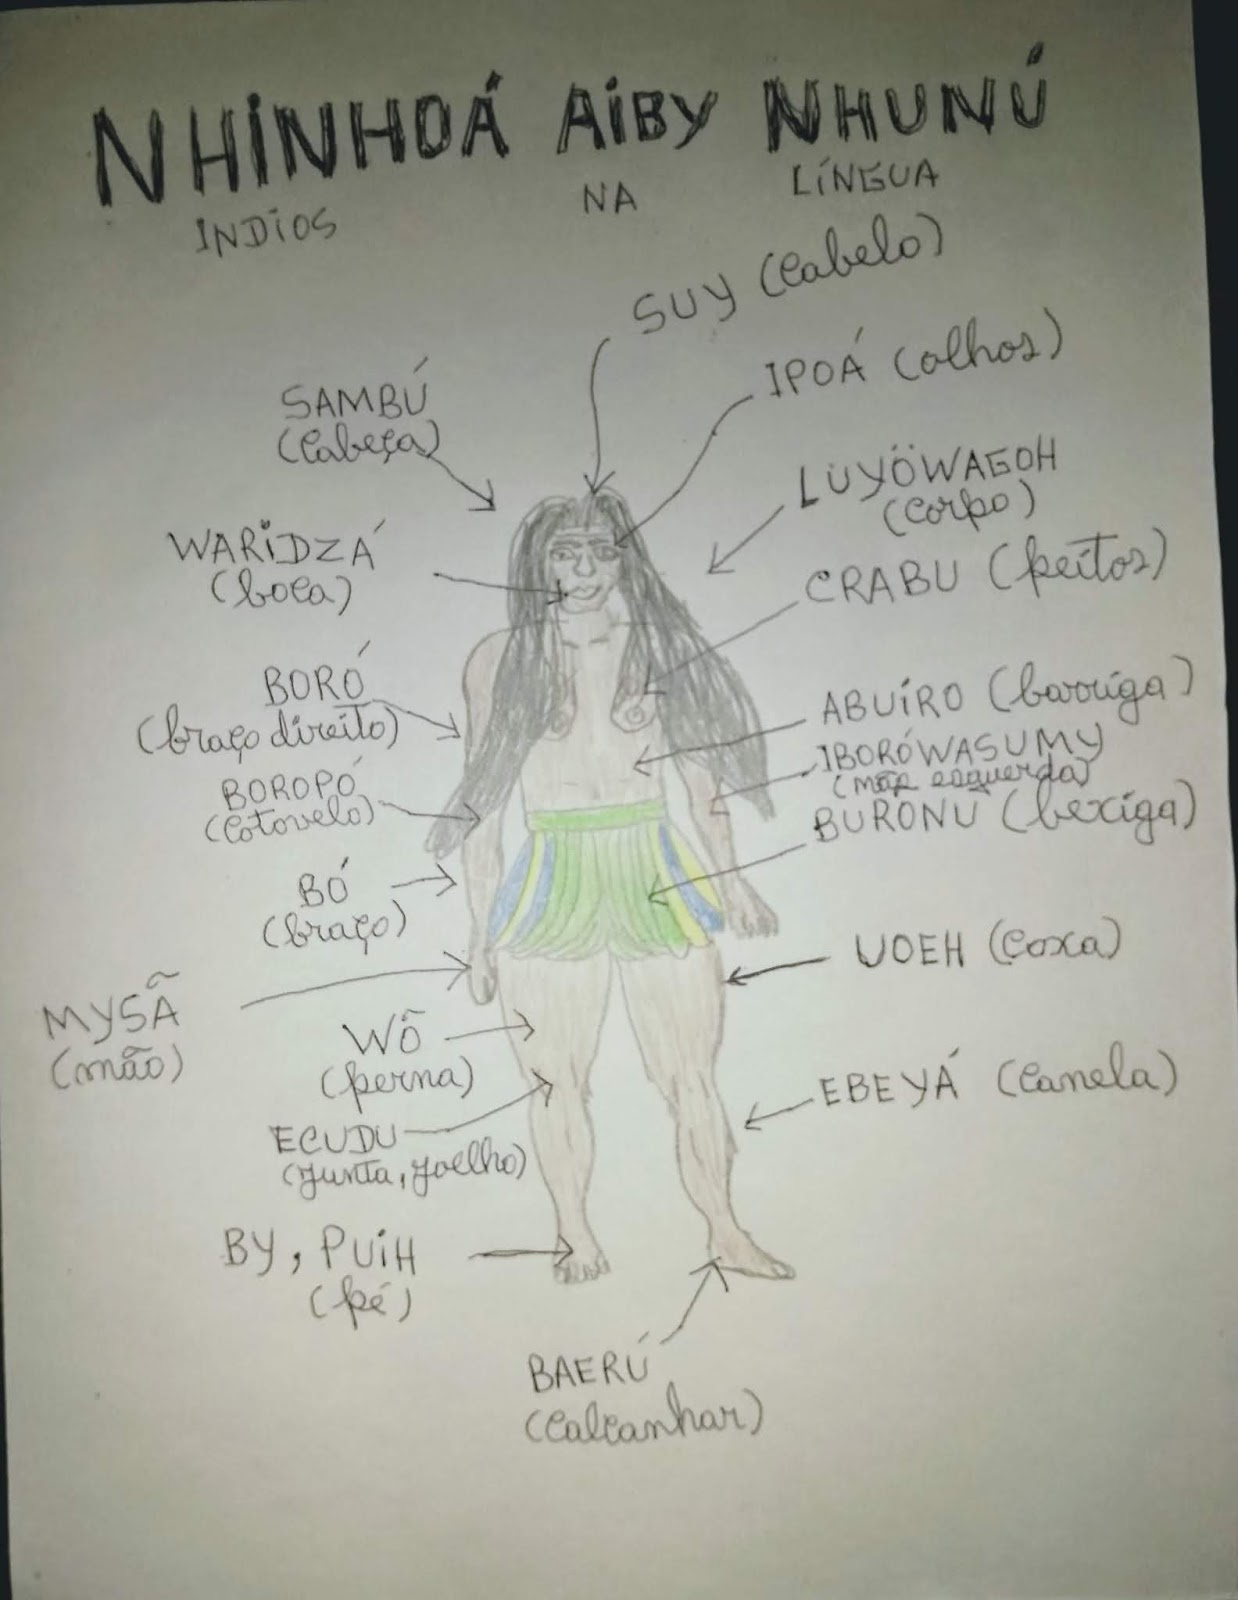 NHINHOÁ AIBY NHUNÚ
INDIOS NA LÍNGUA
SUY (Cabelo)
IPOÁ (olhos)
SAMBÚ
(Cabeça)
LUYÖWAGOH
(Corpo)
WARIDZÁ
(boca)
CRABU (peitos)
BORÓ
(braço direito)
ABUIRO (barriga)
IBORÓWASUMY
(mão esquerda)
BOROPÓ
(Cotovelo)
BURONU (bexiga)
BÓ
(braço)
UOEH (Coxa)
MYSÃ
(mão)
WÕ
(perna)
EBEYÁ (Canela)
ECUDU
(junta, joelho)
BY, PUIH
(pé)
BAERÚ
(Calcanhar)